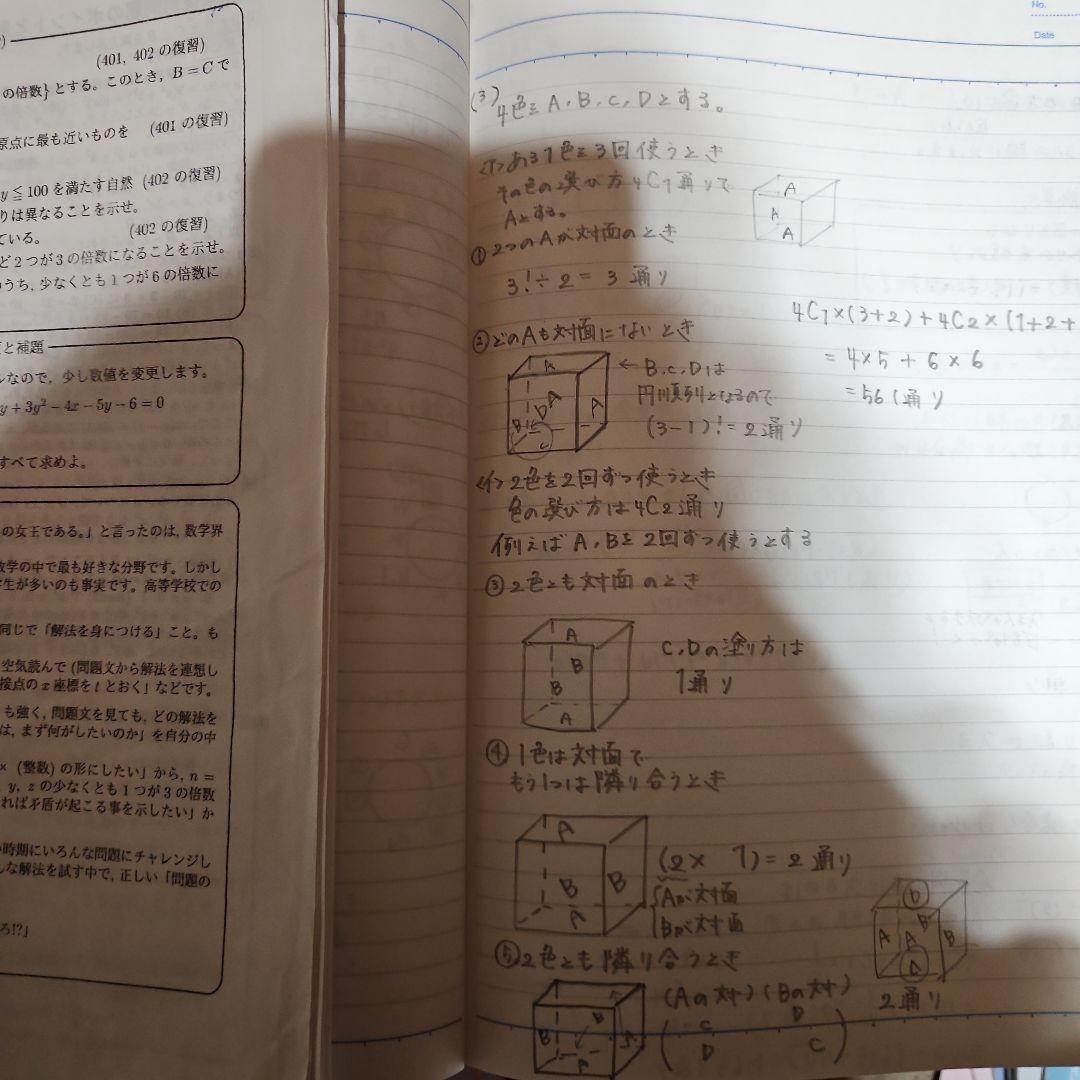 (401, 402 の復習)
の倍数} とする。このとき, B = C で
原点に最も近いものを (401 の復習)
y ≦ 100 を満たす自然 (402 の復習)
りは異なることを示せ。
ている。 (402 の復習)
ど 2 つが 3 の倍数になることを示せ。
うち, 少なくとも 1 つが 6 の倍数に
と補題
なので, 少し数値を変更します。
y + 3y² − 4x − 5y − 6 = 0
すべて求めよ。
の女王である。」と言ったのは, 数学界
数学の中で最も好きな分野です。しかし
学生が多いのも事実です。高等学校での
同じで「解法を身につける」こと。も
空気読んで (問題文から解法を連想し
接点の x 座標を t とおく」などです。
も強く, 問題文を見ても, どの解法を
は, まず何がしたいのか」を自分の中
× (整数) の形にしたい」から, n =
y, z の少なくとも 1 つが 3 の倍数
れば矛盾が起こる事を示したい」か
時期にいろんな問題にチャレンジし
な解法を試す中で, 正しい「問題の
ろ!?」
No.
Date
(3) 4色をA, B, C, Dとする。
<ア>ある1色を3回使うとき
その色の選び方4C1通りで
Aとする。
A
A
A
① 2つのAが対面のとき
3! ÷ 2 = 3 通り
4C1×(3+2)+4C2×(1+2+
= 4×5 + 6×6
= 56 (通り
② どのAも対面にないとき
A
A
A
B
D
C
← B, C, Dは
円順列となるので
(3−1)! = 2通り
<イ> 2色を2回ずつ使うとき
色の選び方は4C2通り
例えばA, Bを2回ずつ使うとする
③ 2色とも対面のとき
A
B
B
A
C, Dの塗り方は
1通り
④ 1色は対面で
もう1つは隣り合うとき
A
B
B
A
(2 × 1) = 2 通り
Aが対面
Bが対面
⑤ 2色とも隣り合うとき
B
B
A
(Aの対) (Bの対)
C D
D C
D
A
A
B
B
C
2通り